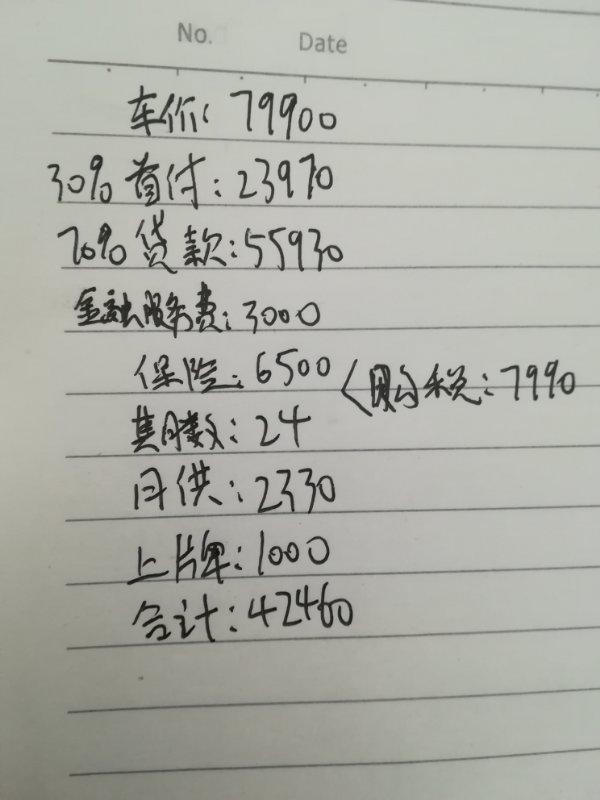 No.
Date
车价: 79900
30% 首付: 23970
70% 贷款: 55930
金融服务费: 3000
保险: 6500 〈购税: 7990
期数: 24
月供: 2330
上牌: 1000
合计: 42460